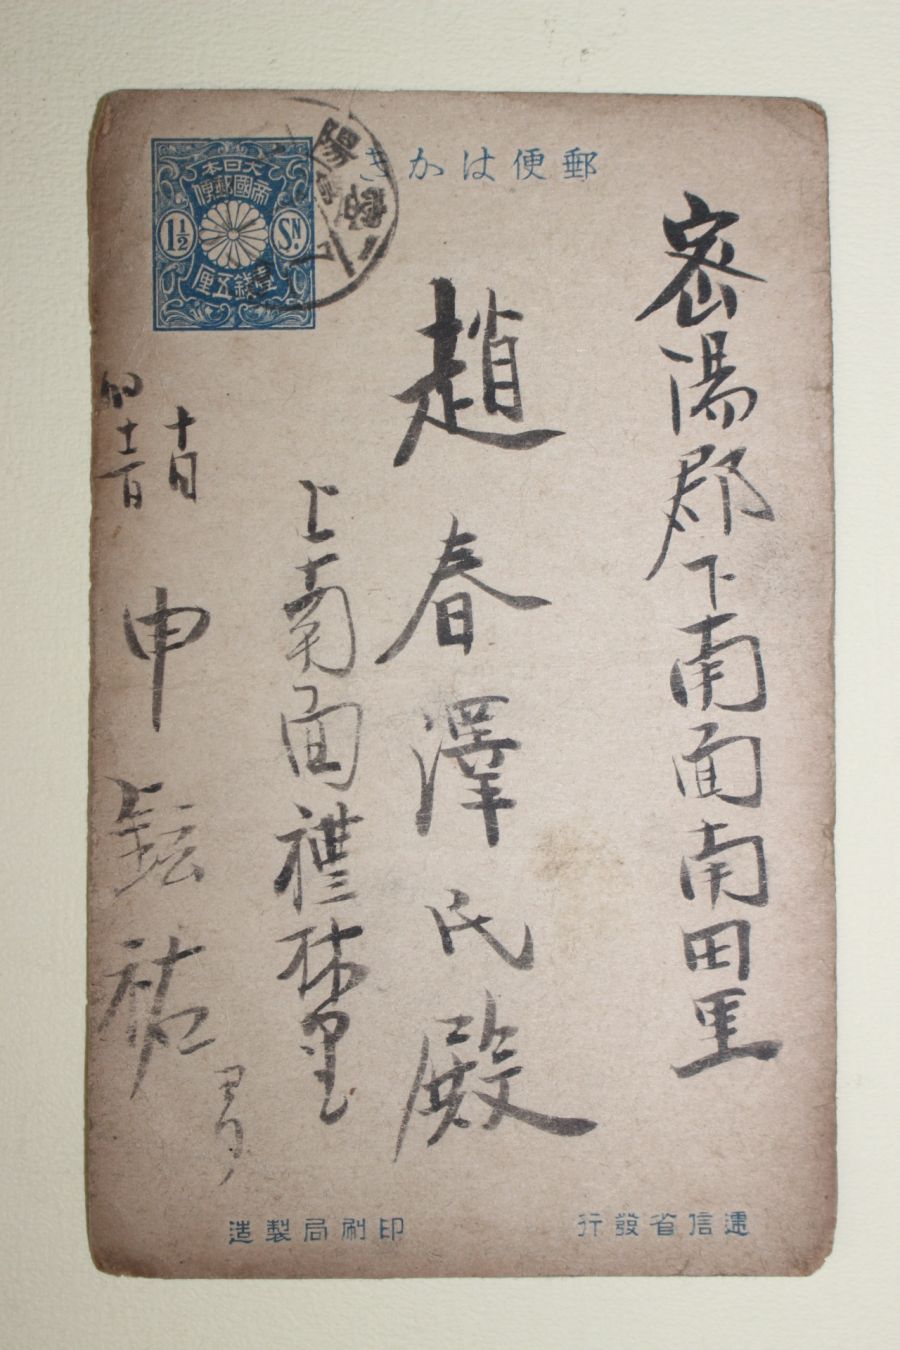 郵便はがき
大日本
帝國郵便
1½
SN.
壹錢五厘
密陽郡下南面南田里
趙春澤氏殿
上南面禮林里
十月
十二日
申鉉祐
ヨリ
遞信省發行
印刷局製造